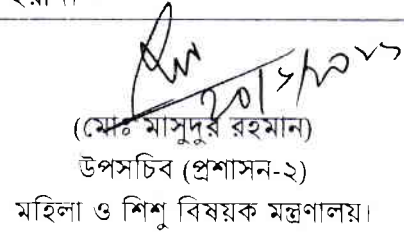 (মোঃ মাসুদুর রহমান)
উপসচিব (প্রশাসন-২)
মহিলা ও শিশু বিষয়ক মন্ত্রণালয়।